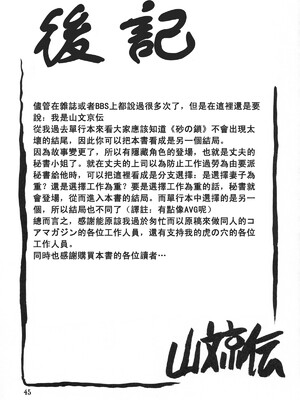 後記
儘管在雜誌或者BBS上都說過很多次了，但是在這裡還是要
說：我是山文京伝
從我過去單行本來看大家應該知道《砂の鎖》不會出現太
壞的結尾，因此你可以把本書看成是另一個結局。
因為故事變更了，所以有隱藏角色的登場，也就是丈夫的
秘書小姐了，就在丈夫的上司以為防止工作過勞為由要派
秘書給他時，可以把這裡看成是分支選擇：是選擇妻子為
重？還是選擇工作為重？要是選擇工作為重的話，秘書就
會登場，從而進入本書的結局。而單行本中選擇的是另一
個，所以結局也不同了（譯註：有點像AVG呢）
總而言之，感謝能原諒我過於匆忙而以原稿來做同人的コ
アマガジン的各位工作人員，還有支持我的虎の穴的各位
工作人員。
同時也感謝購買本書的各位讀者…
山文京伝
45